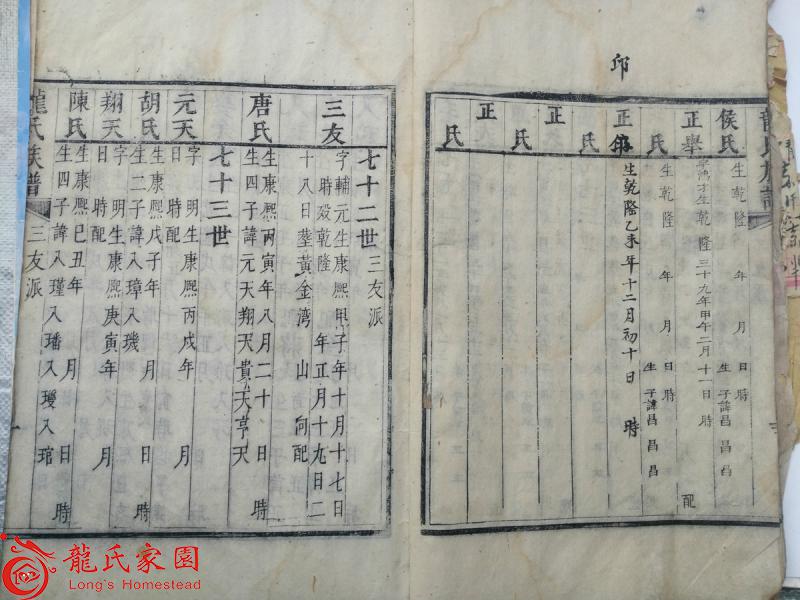 邱
侯氏
生乾隆 年 月 日時 生 子諱昌 昌 昌
正舉
字鴻才生乾隆三十九年甲午二月十一日 時 配
氏
生乾隆 年 月 日 時 生 子諱昌 昌 昌
正
生乾隆乙未年十二月初十日 時
氏
正
氏
正
氏
七十二世 三友派
三友
字輔元生康熙甲子年十月十七日
時殁乾隆 年正月十九日二
十八日塟黃金湾 山 向配
唐氏
生康熙丙寅年八月二十 日 時
生四子諱元天翔天貴天亨天
七十三世
元天
字 明生康熙丙戌年 月
日 時配
胡氏
生康熙戊子年 月 日 時
生二子諱入璋入璣
翔天
字 明生康熙庚寅年 月
日 時配
陳氏
生康熙己丑年 月 日 時
生四子諱入瑾入璠入璦入琯
龍氏族譜 三友派
龍氏家園
Long's Homestead